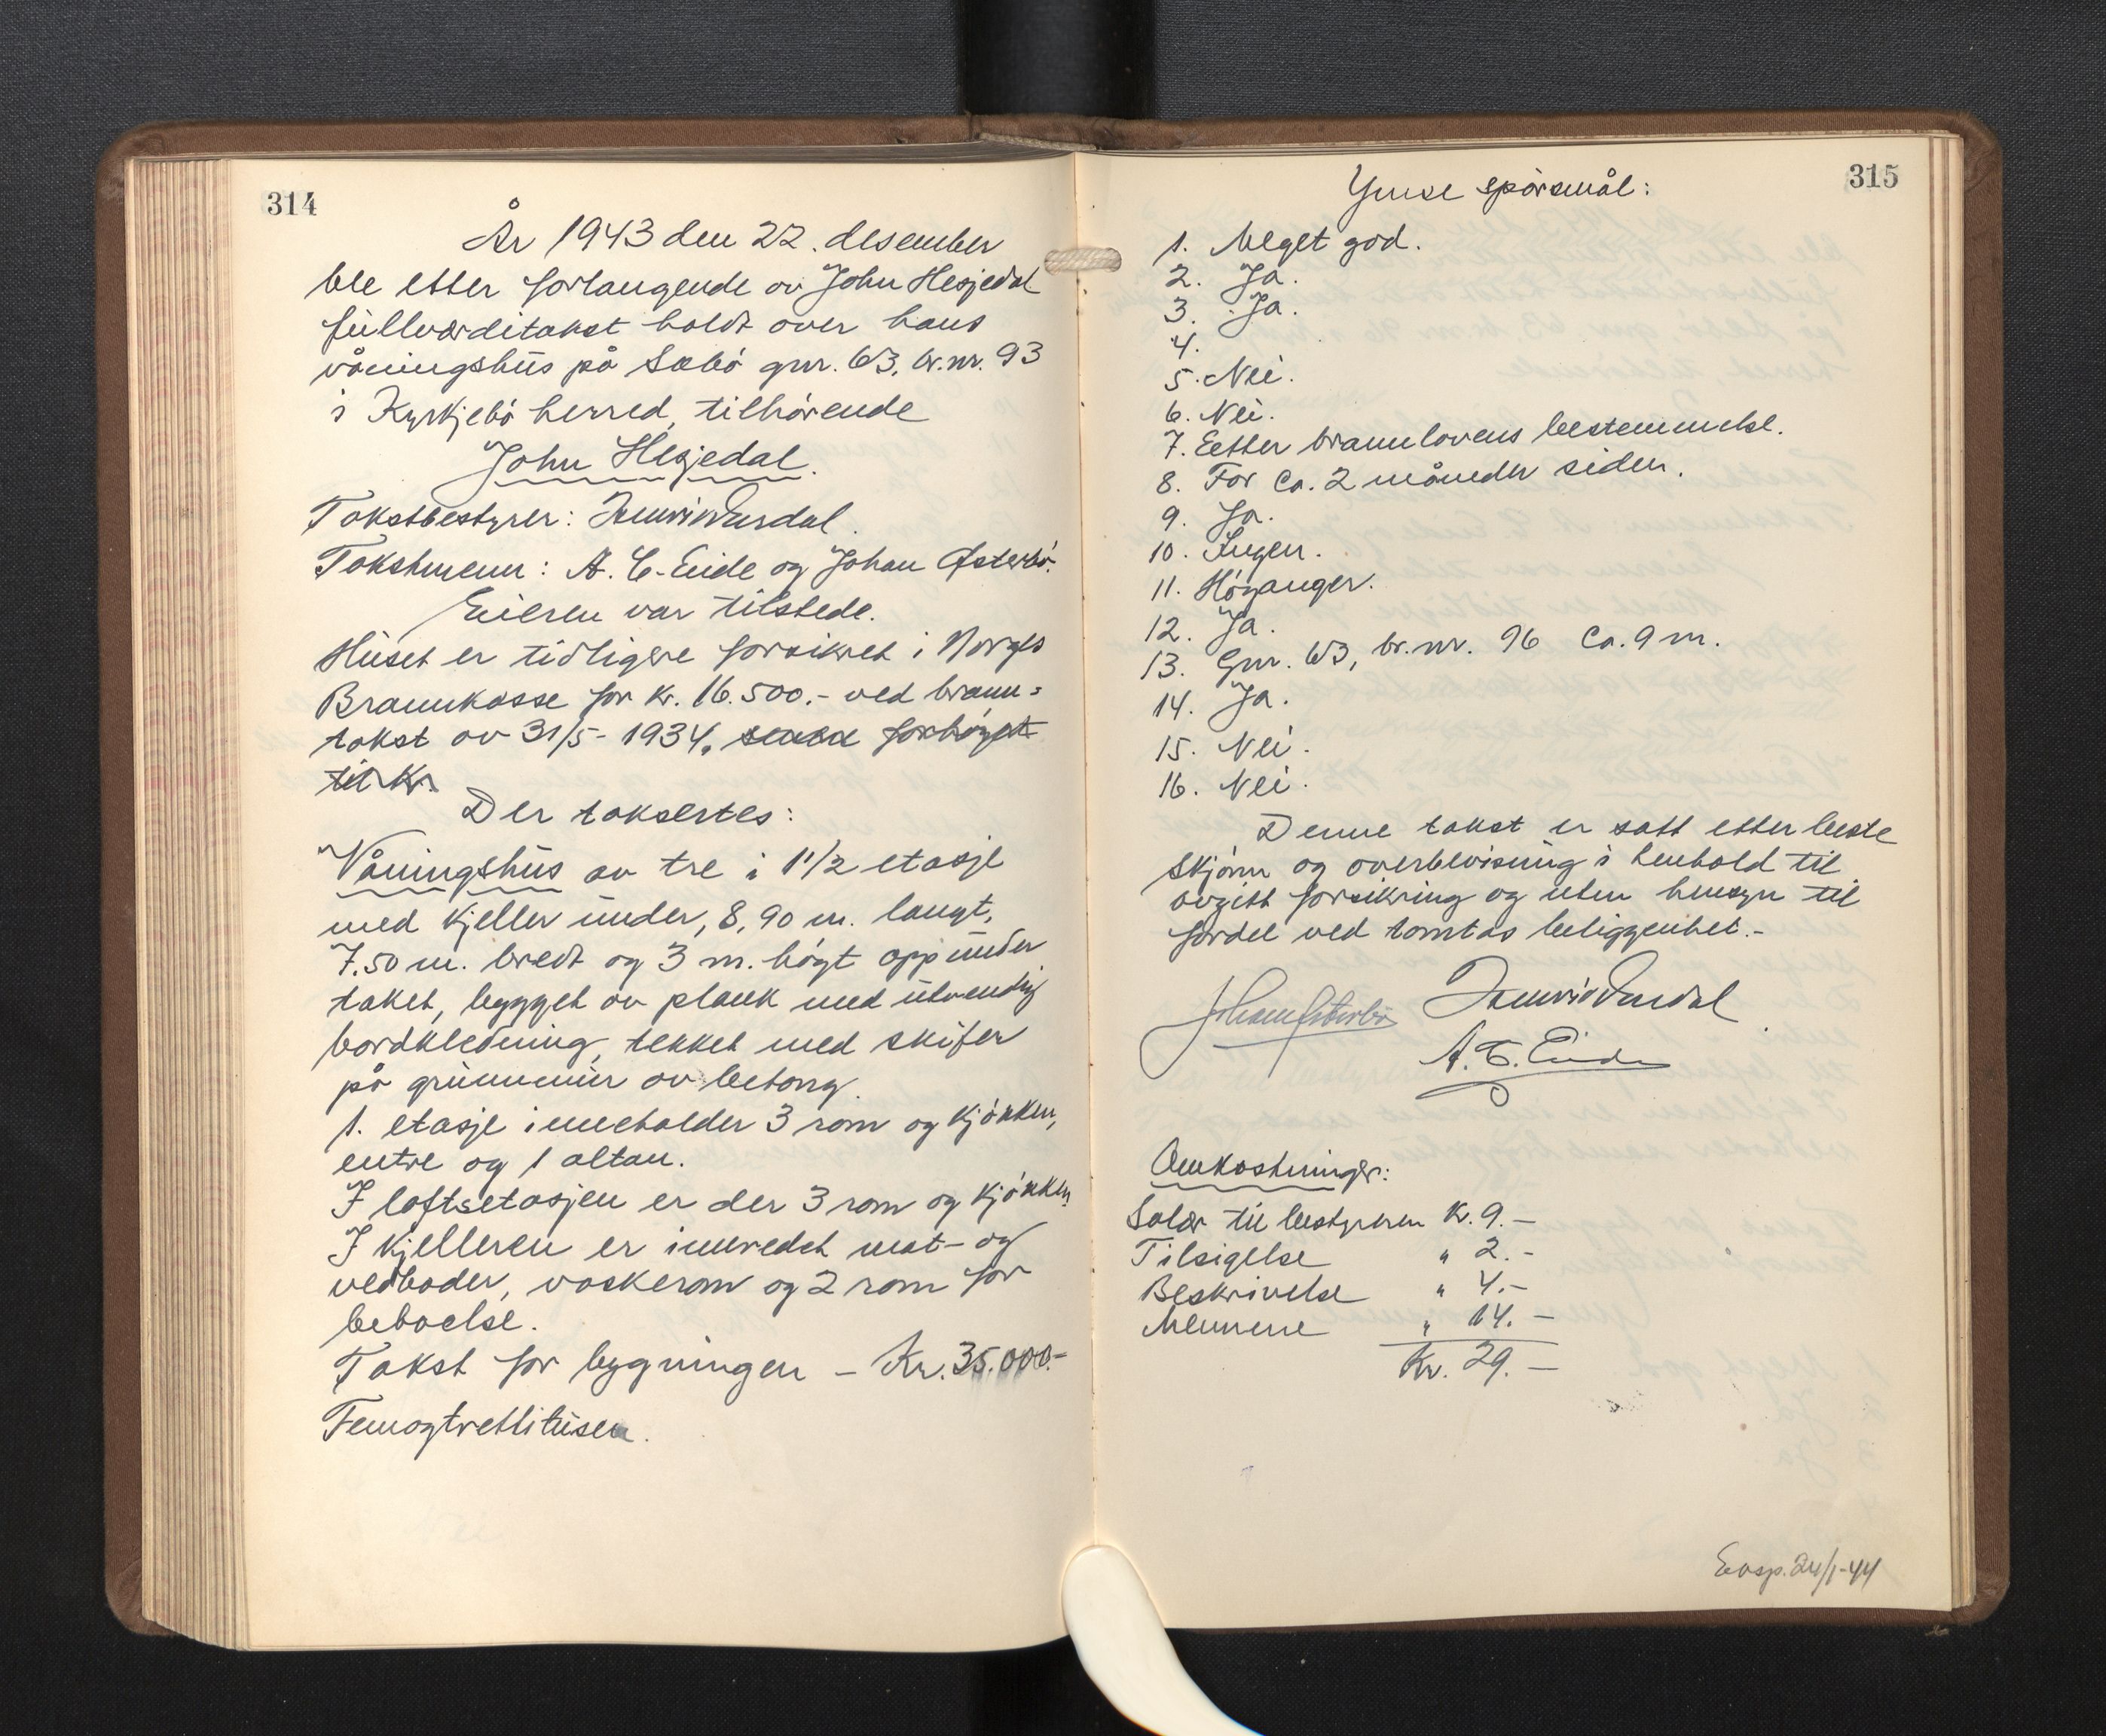 314
År 1943 den 22. desember
ble etter forlangende av John Hesjedal
fullverditakst holdt over hans
våningshus på Sæbö gnr. 63, br.nr. 93
i Kyrkjebö herred, tilhörende
John Hesjedal.
Takstbestyrer:
Takstmenn: A. E. Eide og Johan Østerbö.
Eieren var tilstede.
Huset er tidligere forsikret i Norges
Brannkasse for kr. 16.500.- ved brann=
takst av 31/5- 1934, senere forhöyet
til kr.
Der takseres:
"Våningshus av tre i 1 1/2 etasje
med kjeller under, 8,90 m. langt,
7.50 m. bredt og 3 m. högt opp under
taket, bygget av plank med utvendig
bordkledning, tekket med skifer
på grunnmur av betong.
1. etasje inneholder 3 rom og kjökken,
entre og 1 altan.
I loftsetasjen er der 3 rom og kjökken.
I kjelleren er innredet mat- og
vedboder, vaskerom og 2 rom for
beboelse.
Takst for bygningen - Kr. 35.000.-
Femogtrettitusen.
315
Ymse spörsmål:
1. Meget god.
2. Ja.
3. Ja.
4.
5. Nei.
6. Nei.
7. Eetter brannlovens bestemmelse.
8. For ca. 2 måneder siden.
9. Ja.
10. Ingen.
11. Höyanger.
12. Ja.
13. Gnr. 63, br.nr. 96 ca. 9 m.
14. Ja.
15. Nei.
16. Nei.
Denne takst er satt etter beste
skjönn og overbevisning i henhold til
avgitt forsikring og uten hensyn til
fordel ved tomtas beliggenhet.-
Johan Østerbö
A. E. Eide
Omkostninger:
Salær til bestyreren kr. 9.-
Tilsigelse " 2.-
Beskrivelse " 4.-
Mennene " 14.-
Kr. 29.-
Eksp. 24/1-44